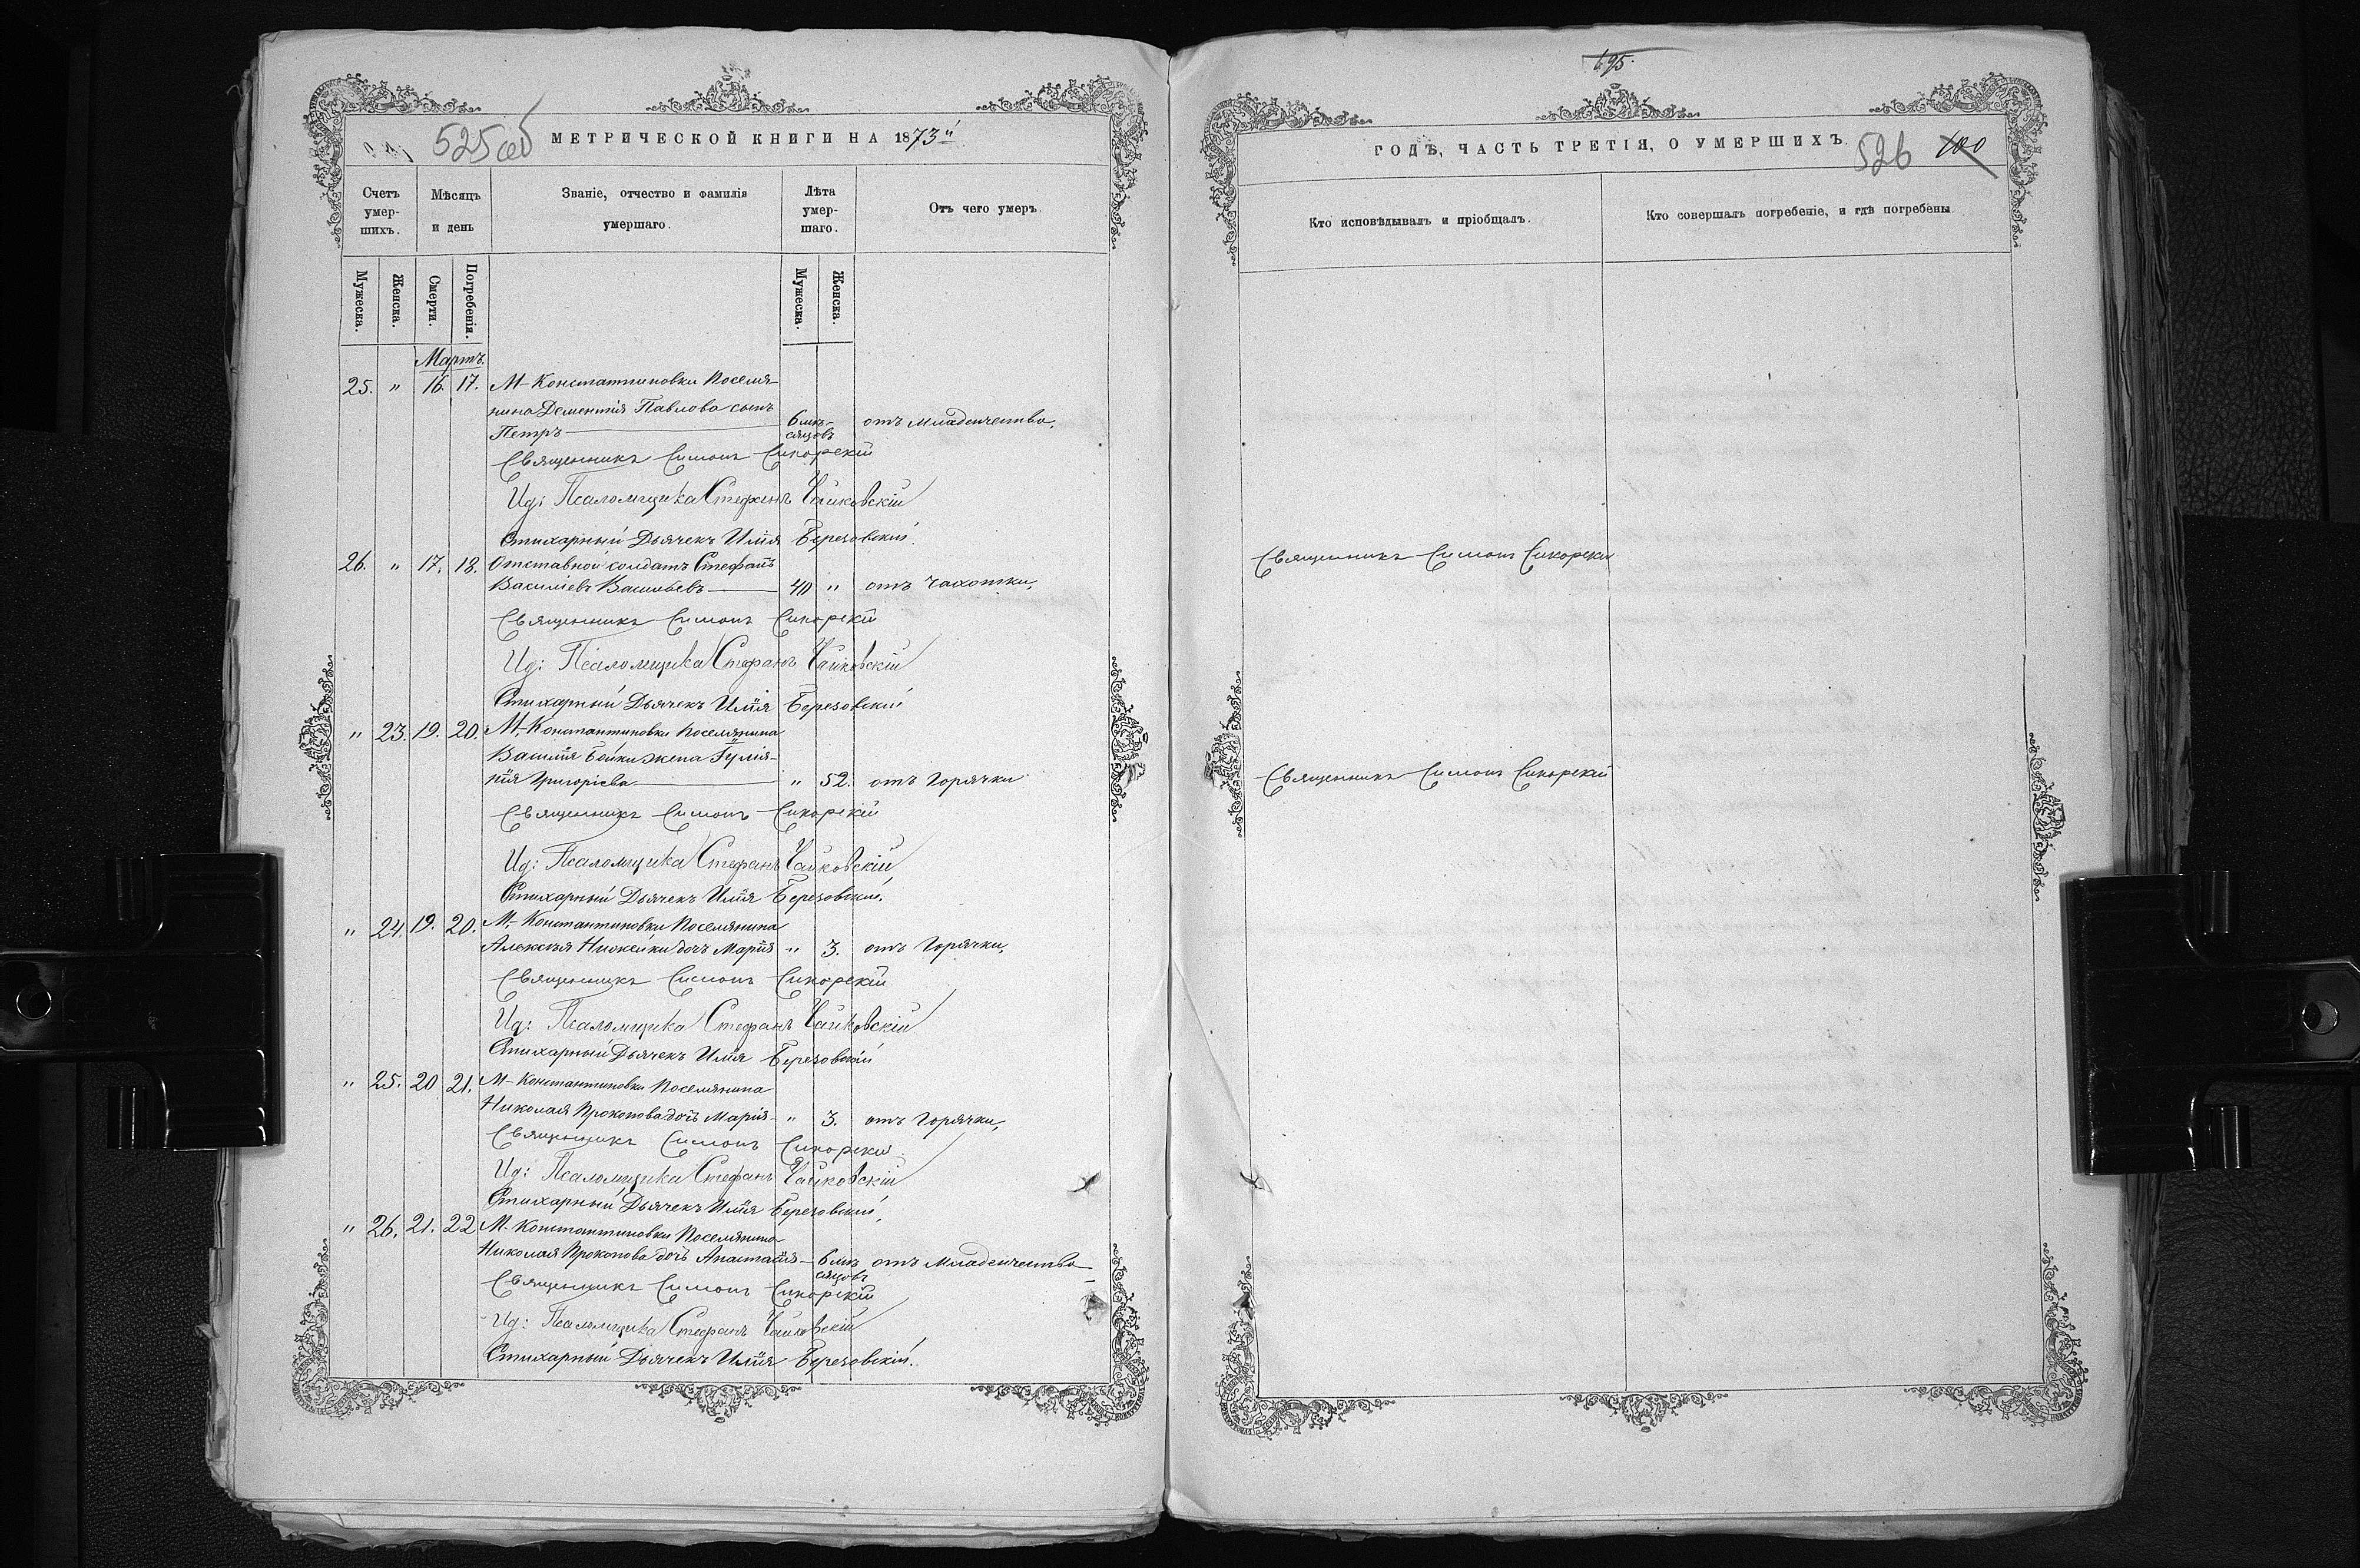 525 об
МЕТРИЧЕСКОЙ КНИГИ НА 1873й
Счетъ умер- шихъ.
Мѣсяцъ и день
Званіе, отчество и фамилія умершаго.
Лѣта умер- шаго.
Отъ чего умеръ.
Мужеска.
Женска.
Смерти.
Погребенія.
Мужеска.
Женска.
Мартъ.
25. " 16. 17. М- Константиновки Поселя-
нина Дементія Павлова сынъ
Петръ 6 мѣ- отъ младенчества.
сяцовъ
Священникъ Симонъ Сикорскій
Ид: Псаломщика Стефанъ Чайковскій
Стихарный Дьячекъ Илія Березовскій.
26. " 17. 18. Отставной солдатъ Стефанъ
Василіевъ Васильевъ 40 " отъ чахотки,
Священникъ Симонъ Сикорскій
Ид: Псаломщика Стефанъ Чайковскій
Стихарный Дьячекъ Илія Березовскій
" 23. 19. 20. М- Константиновки Поселянина
Василія Бойки жена
Григоріева " 52. отъ Горячки
Священникъ Симонъ Сикорскій
Ид: Псаломщика Стефанъ Чайковскій
Стихарный Дьячекъ Илія Березовскій.
" 24. 19. 20. М- Константиновки Поселянина
Алексѣя дочь Марія " 3. отъ Горячки,
Священникъ Симонъ Сикорскій
Ид: Псаломщика Стефанъ Чайковскій
Стихарный Дьячекъ Илія Березовскій
" 25. 20 21. М- Константиновки Поселянина
Николая Прокопова дочь Марія- " 3. отъ Горячки,
Священникъ Симонъ Сикорскій
Ид: Псаломщика Стефанъ Чайковскій
Стихарный Дьячекъ Илія Березовскій,
" 26. 21. 22 М- Константиновки Поселянина
Николая Прокопова дочь Анастасія- 6 мѣ отъ Младенчества
сяцовъ
Священникъ Симонъ Сикорскій
Ид: Псаломщика Стефанъ Чайковскій
Стихарный Дьячекъ Илія Березовскій.
195.
ГОДЪ, ЧАСТЬ ТРЕТІЯ, О УМЕРШИХЪ.
526 100
Кто исповѣдывалъ и пріобщалъ.
Кто совершалъ погребеніе, и гдѣ погребены.
Священникъ Симонъ Сикорскій
Священникъ Симонъ Сикорскій